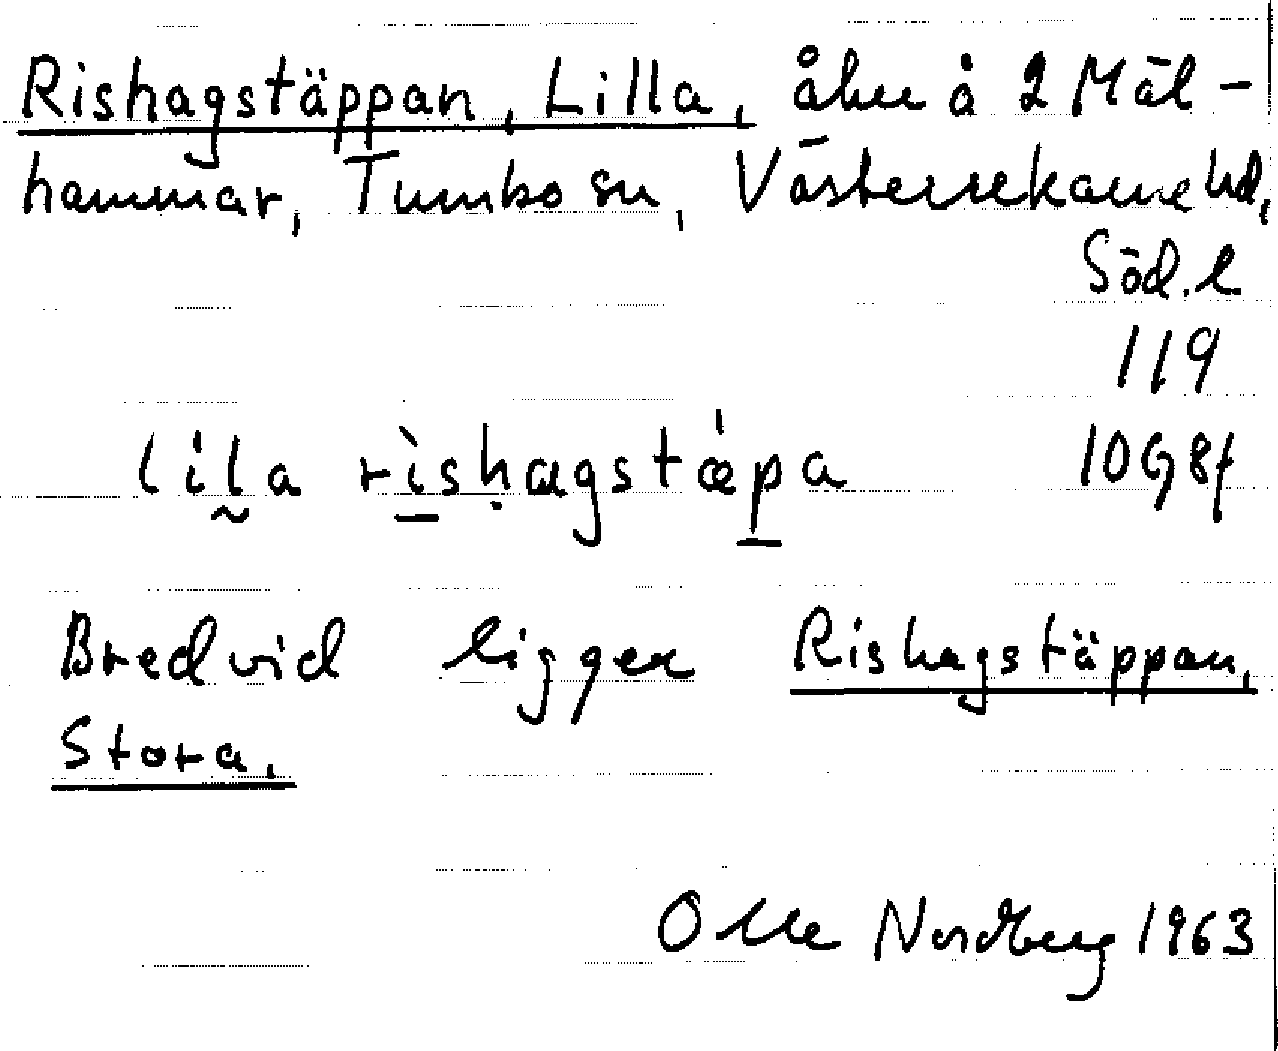 Rishagstäppan, Lilla, åker å 2 Mäl-
hammar, Tumbo sn, Västerrekarne hd,
Söd. l
119
lila rishagstæpa 10G8f
Bredvid ligger Rishagstäppan,
Stora.
Olle Nordberg 1963